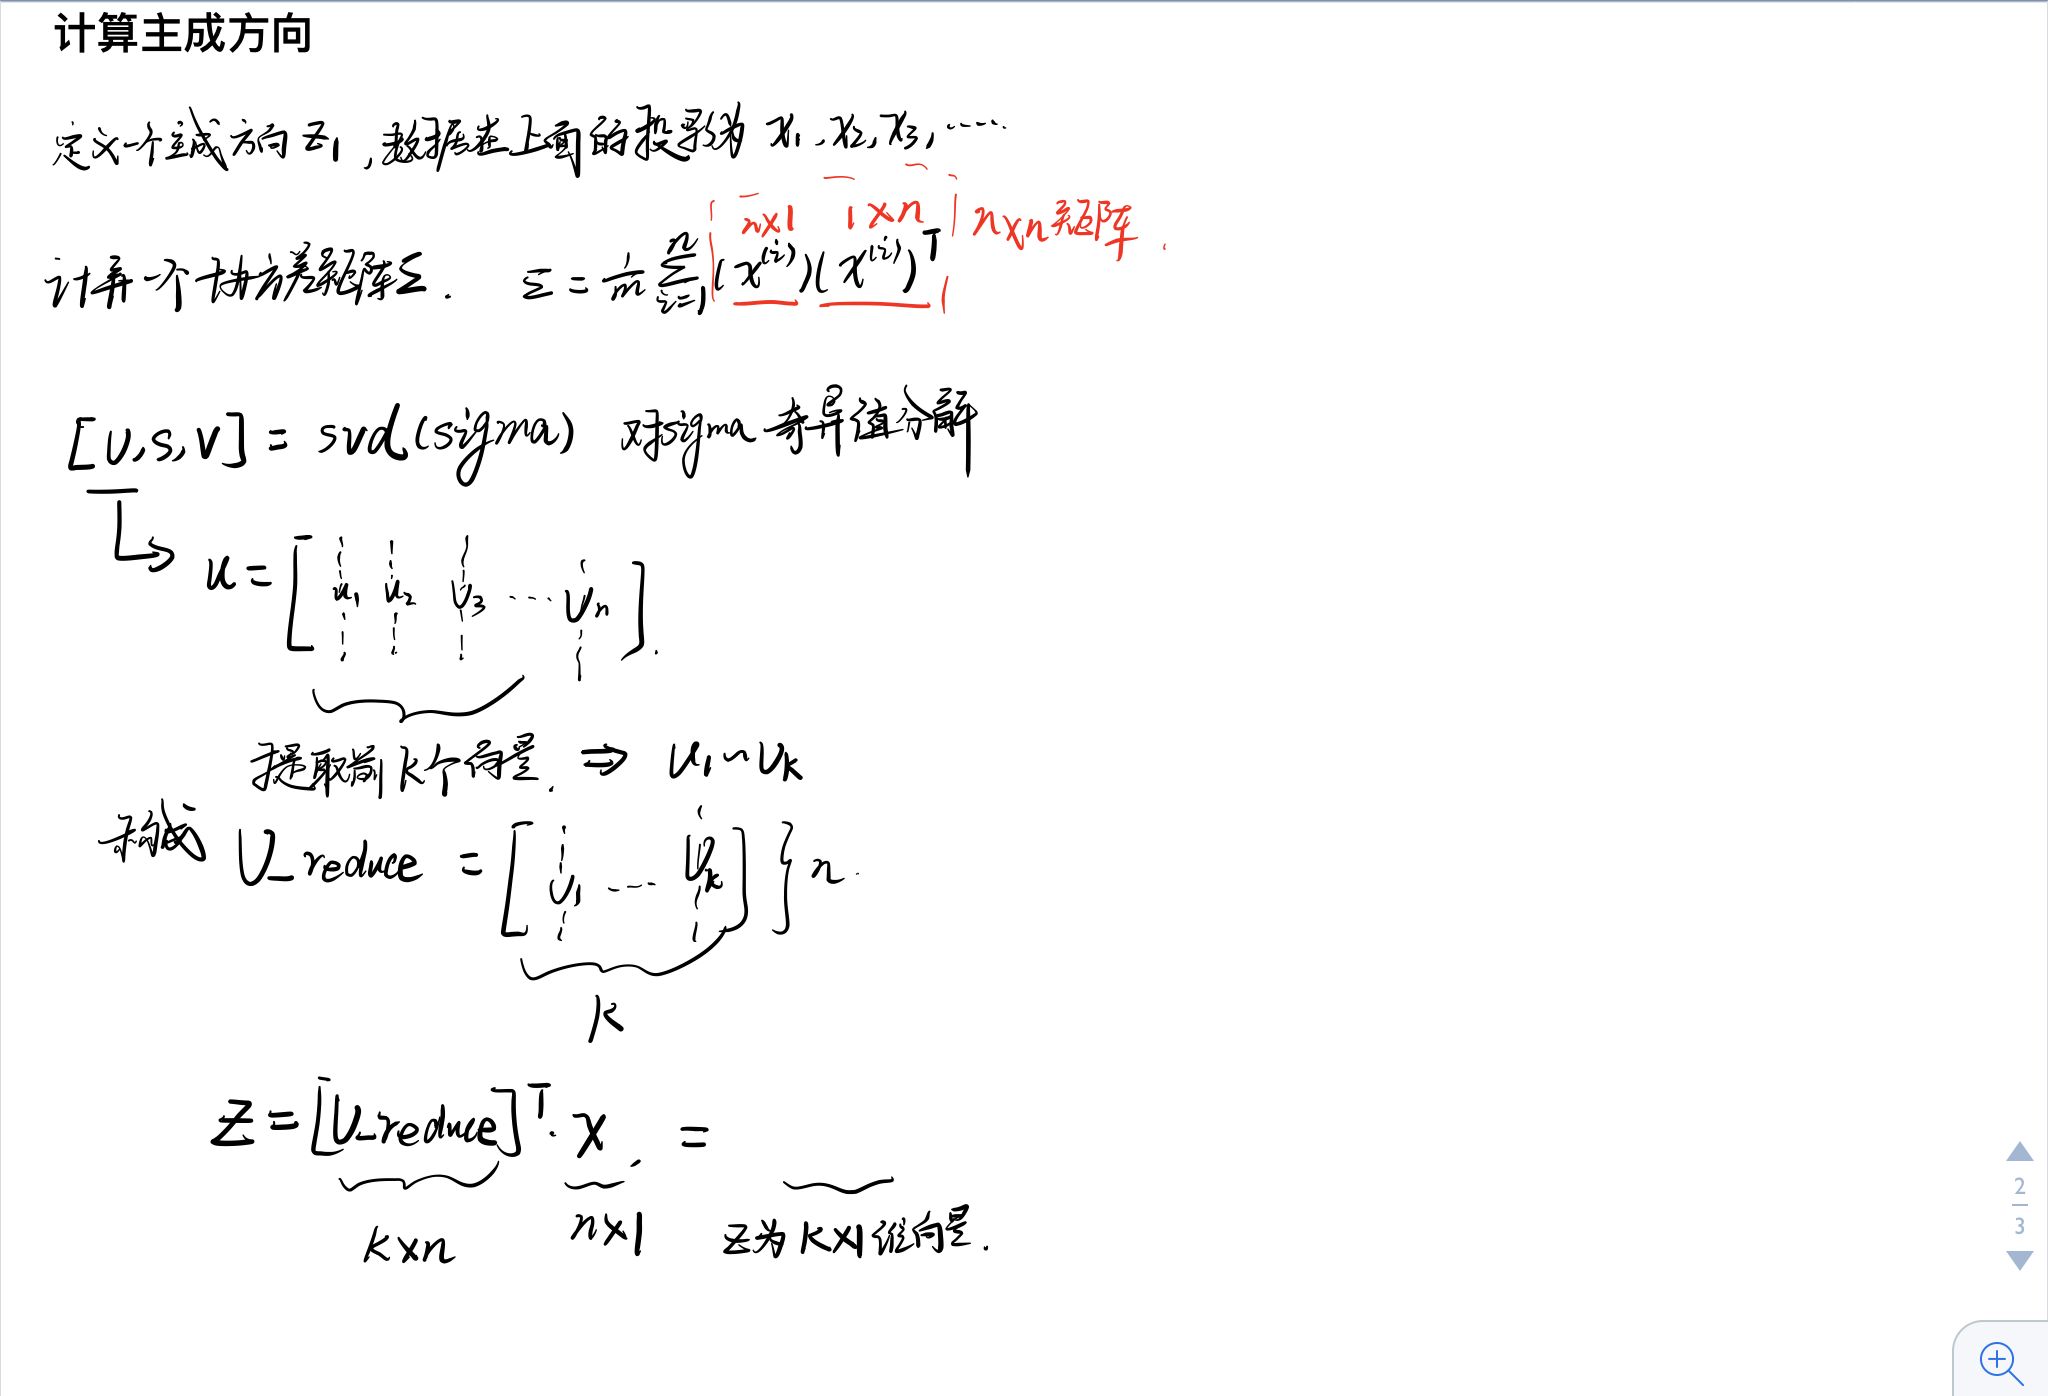 计算主成方向
定义一个主成方向 z₁，数据在上面的投影为 x₁, x₂, x₃, ....
n×1 1×n n×n矩阵.
计算一个协方差矩阵Σ. Σ = 1/m Σ_{i=1}^{n} (x^{(i)})(x^{(i)})^T
[U,S,V] = svd(sigma) 对sigma奇异值分解
u = [u₁ u₂ u₃ ... uₙ].
提取前k个向量. ⇒ u₁~uₖ
构成 U_reduce = [u₁ ... uₖ] } n.
k
z = [U_reduce]^T · x =
k×n n×1 z为k×1维向量.
2
3